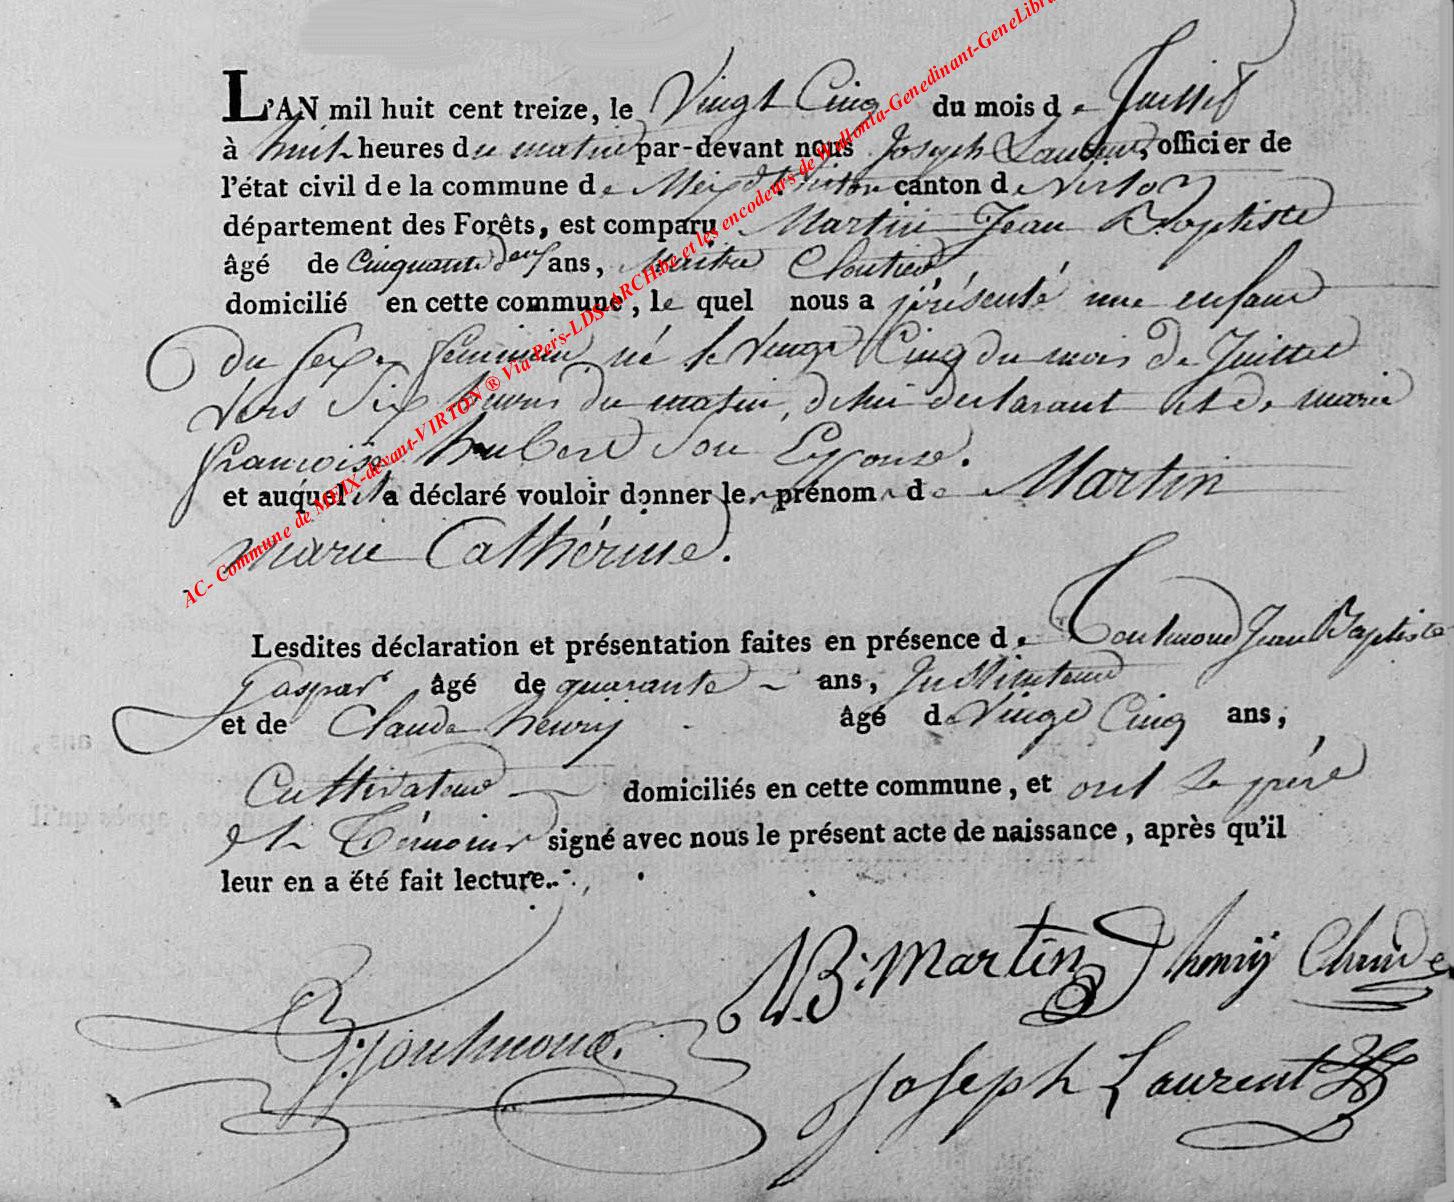 L'AN mil huit cent treize, le Vingt Cinq du mois de Juillet
à huit heures du matin par-devant nous Joseph Laurent, officier de
l'état civil de la commune de Meix dt Virton canton de Virton
département des Forêts, est comparu Martin Jean Baptiste
âgé de Cinquante deux ans, Maitre Cloutier
domicilié en cette commune, le quel nous a présenté une enfant
du sexe feminin né le Vingt Cinq du mois de Juillet
Vers Six heures du matin, de lui declarant et de marie
francoise hubert son Epouse.
et auquel il a déclaré vouloir donner les prénoms de Martin
marie Cathérine.
Lesdites déclaration et présentation faites en présence de Jean Baptiste
Gaspar âgé de quarante ans, Instituteur
et de Claude henrÿ âgé de Vingt Cinq ans,
Cultivateur domiciliés en cette commune, et ont le père
et Témoins signé avec nous le présent acte de naissance, après qu'il
leur en a été fait lecture.
JB: Martin henrÿ Claude
Joseph Laurent
AC- Commune de MEIX-devant-VIRTON ® Via Pers-LDS-ARCH.be et les encodeurs de Wallonia-Genedinant-GeneLibra